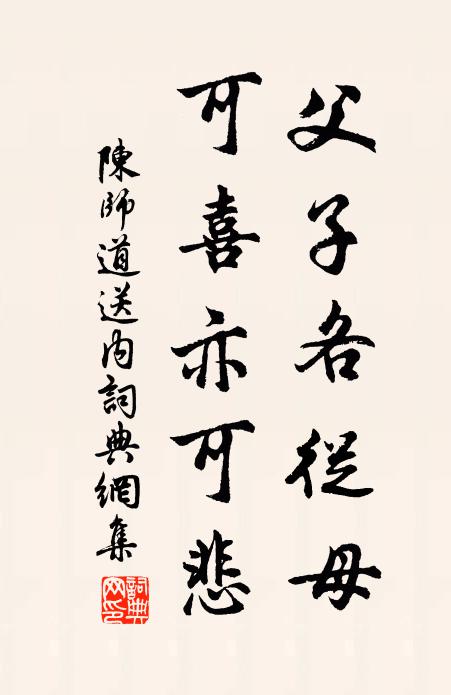 父子各從母
可喜亦可悲
陳師道送內詞典網集
詞典網印